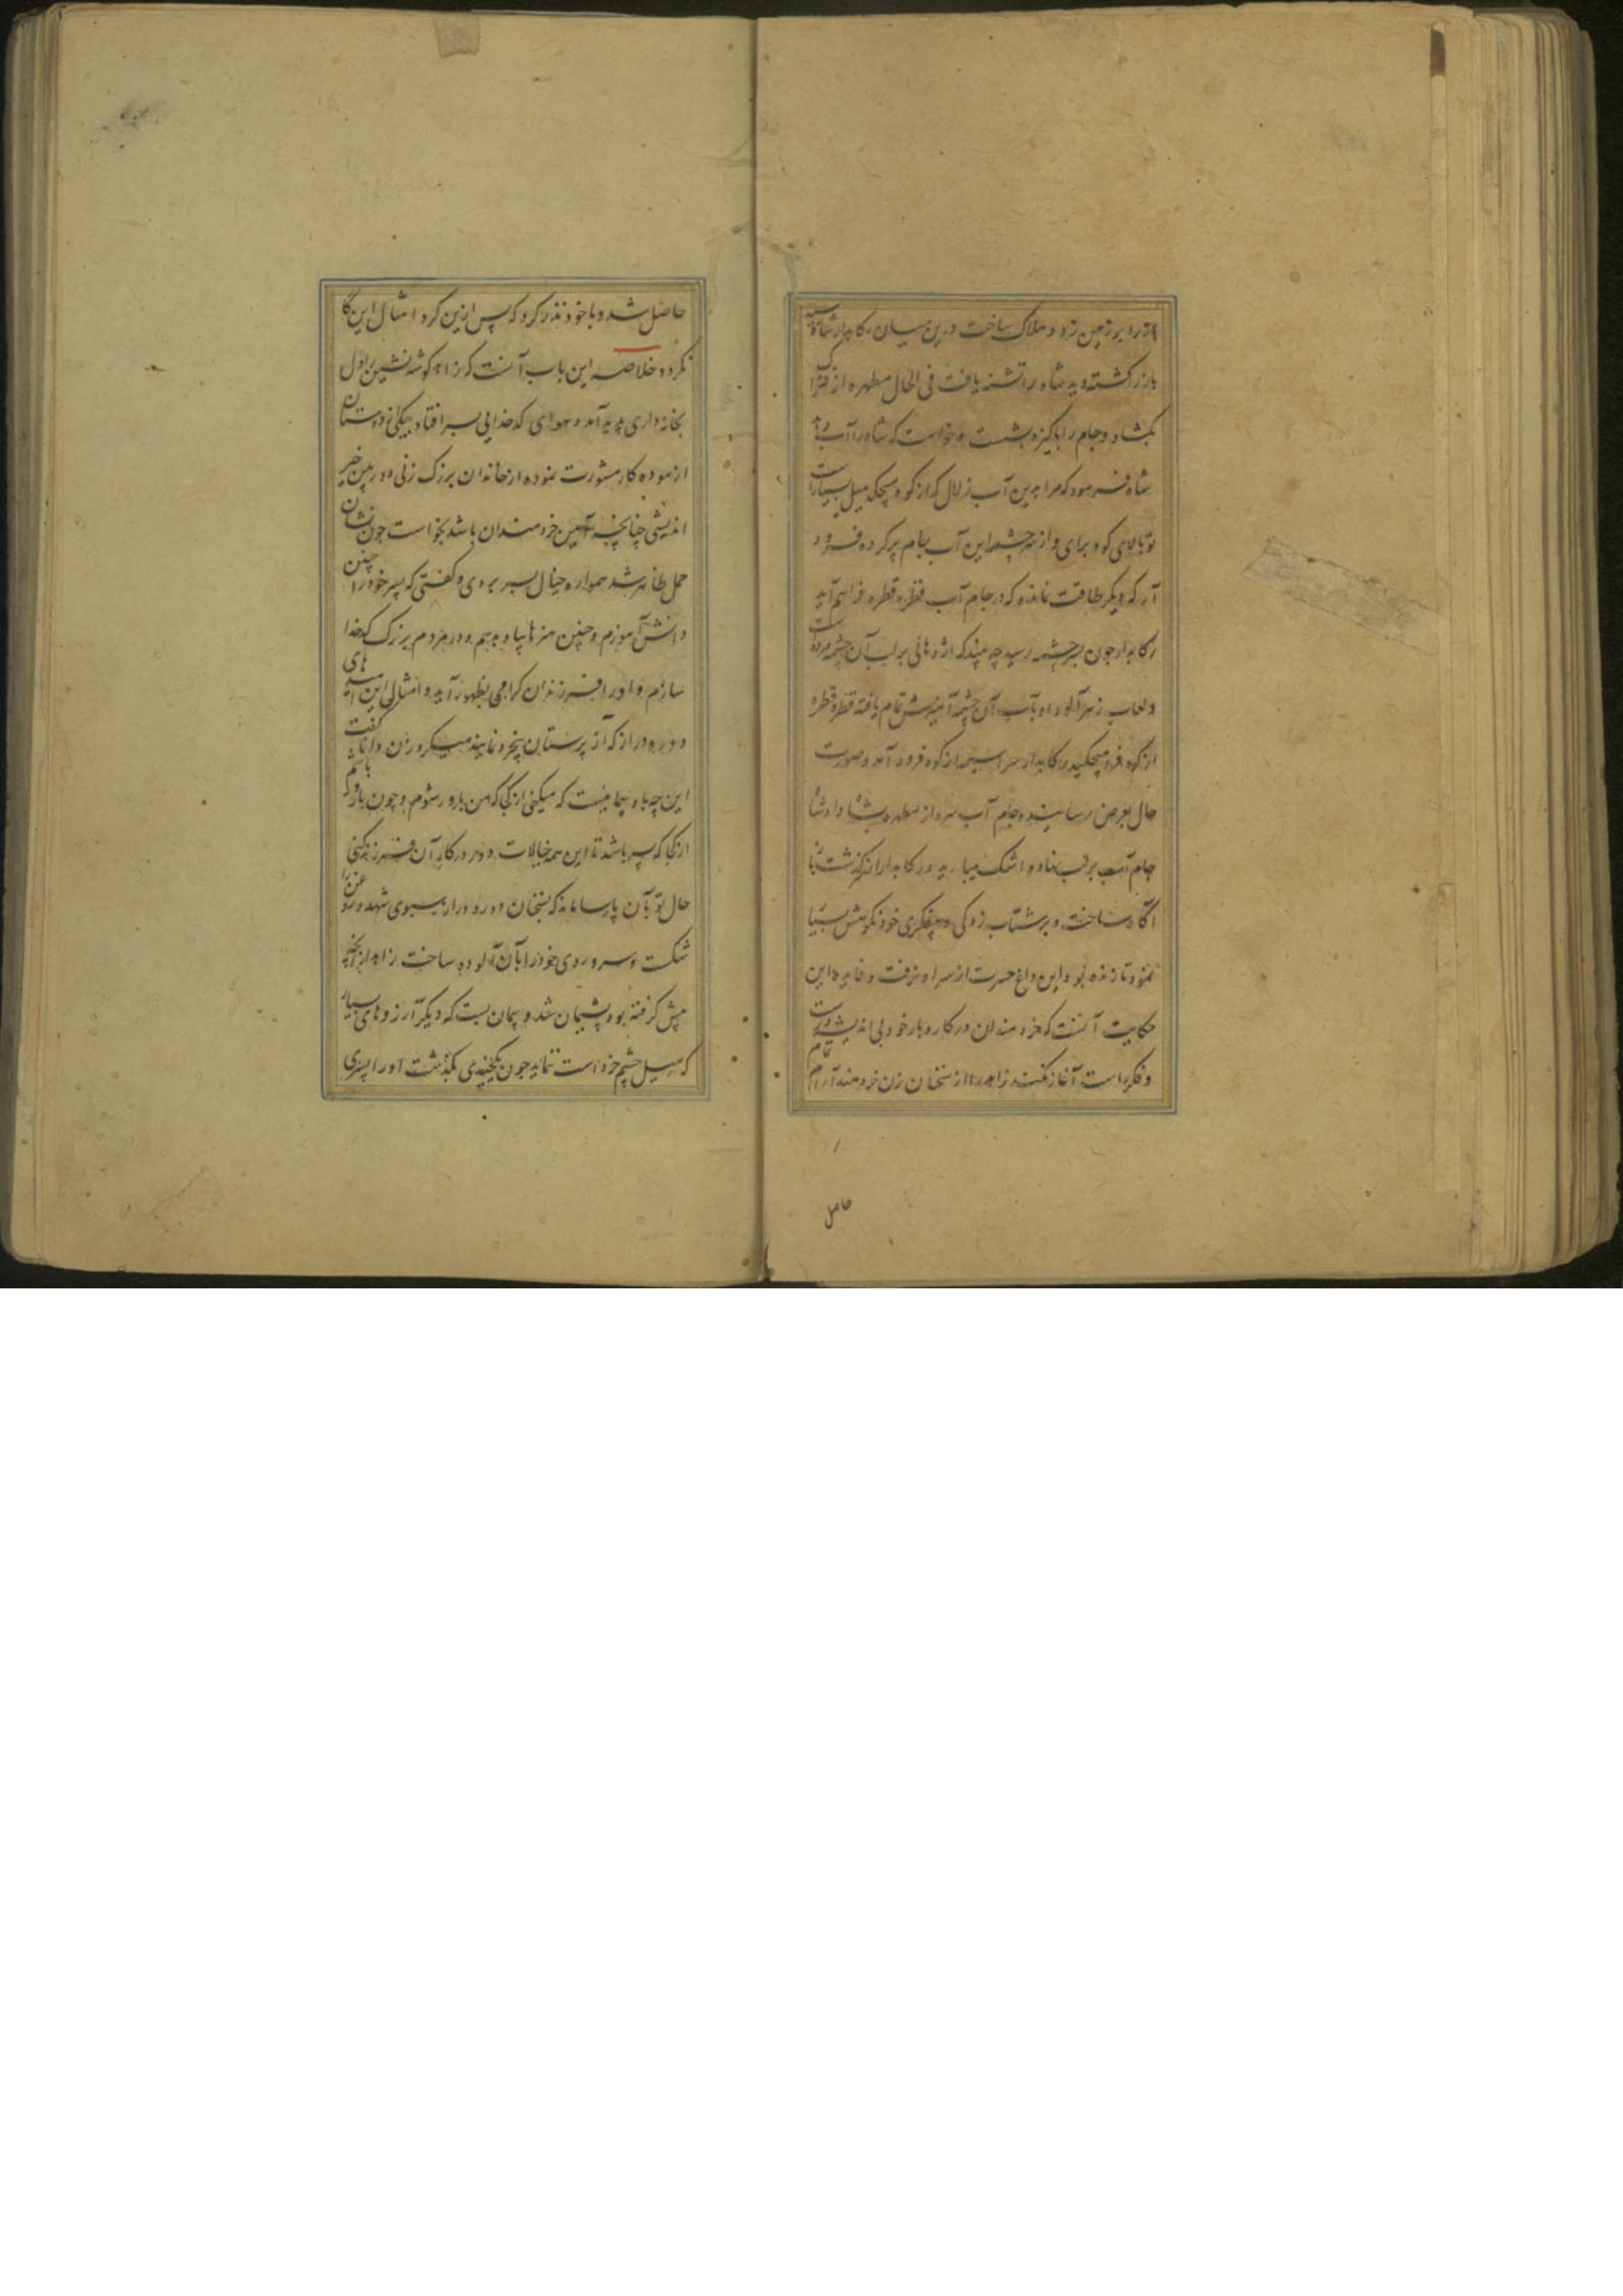 او را بر زمین زد و هلاک ساخت درین میان رکابدار شاه رسید
باز را کشته دید شاه را تشنه یافت فی الحال مطهره از فتراک
بگشاد و جام را پاکیزه بشست و خواست که شاه را آب دهد
شاه فرمود که مرا بدین آب زلال که از کوه میچکد میل بسیارست
تو بالای کوه برای و از سرچشمه این آب جام پر کرده فرود
آر که دیگر طاقت نمانده که در جام آب قطره قطره فراهم آید
رکابدار چون بر چشمه رسید چه بیند که اژدهائی بر لب آن چشمه مرده است
و لعاب زهرآلود او بآب آن چشمه آمیزش تمام یافته قطره قطره
از کوه فرو میچکید رکابدار سراسیمه از کوه فرود آمد و صورت
حال بعرض رسانید و جام آب سرد از مطهره بشاه داد شاه
جام آب بر لب نهاده اشک میبارید و رکابدار را از سرگذشت باز
آگاه ساخت و بر شتاب زدگی و بیفکری خود نکوهش بسیار
نمود تا زنده بود این داغ حسرت از سر او نرفت و فایده این
حکایت آنست که خردمندان در کار و بار خود بی اندیشه درست
و فکر راست آغاز نکنند زاهد را از سخنان زن خردمند آرام تمام
حاصل
حاصل شد و با خود نذر کرد که پس ازین کرد امثال این کار
نگردد خلاصه این باب آنست که زاهد گوشه نشین را دل
بخانه داری پدید آمد و هوای کدخدایی بسر افتاد بیکی از دوستان
ازموده کار مشورت نموده از خاندان بزرگ زنی دوربین خیر
اندیشی چنانچه آیین خردمندان باشد بخواست چون نشان
حمل ظاهر شد همواره خیال پسر بردی و گفتی که پسر خود را چنین
دانش آموزم و چنین هنرها یاد بدهم و در مردم بزرگ کدخدا
سازم و او را فرزندان گرامی بظهور آید و امثال این امید های
دور و دراز که از پرستان بخرد نمایند میکرد زن دانا گفت
این چه باد پیمائیست که میکنی از کجا که من بارور شوم و چون بارور باشم
از کجا که پسر باشد تا این همه خیالات دور در کار آن فرزند کنی
حال تو بآن پارسا ماند که بسخنان دور و دراز سبوی شهد و روغن را
شکست و سر و روی خود را بآن آلوده ساخت زاهد از آنچه
پیش گرفته بود پشیمان شد و پیمان بست که دیگر آرزوهای بسیار
که میل چشم خرد است ننماید چون یکچندی بگذشت او را پسری